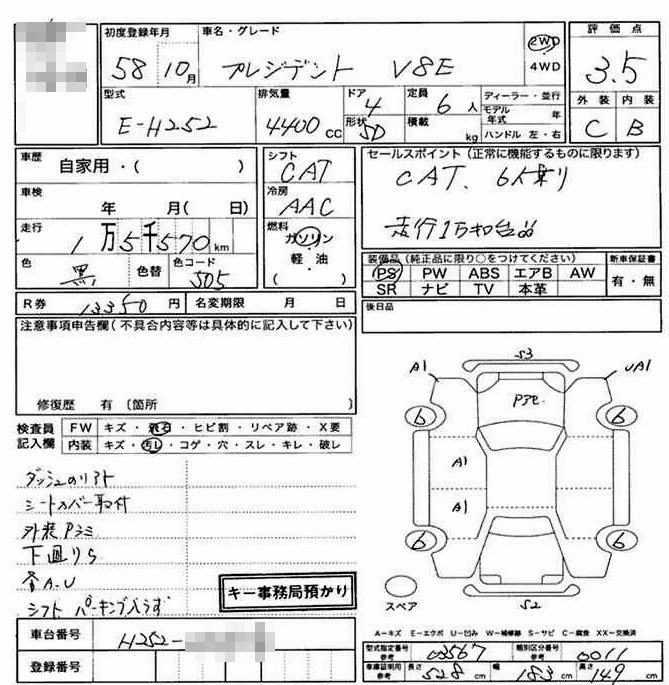 初度登録年月 車名・グレード 評価点
58 10月 プレジデント V8E 2WD 3.5
4WD
型式 排気量 ドア 定員 ディーラー・並行 外装 内装
E-H252 4400cc 4 6人 モデル年式 年 C B
形状 5D 積載 kg ハンドル 左・右
車歴 自家用・( ) シフト CAT セールスポイント(正常に機能するものに限ります)
車検 年 月( 日) 冷房 AAC CAT、6人乗り
走行 1万5千570km 燃料 ガソリン 走行1万和台品
軽・油
( )
色 黒 色替 色コード 505
装備品(純正品に限り○をつけてください) 新車保証書
PS PW ABS エアB AW 有・無
SR ナビ TV 本革
R券 13350円 名変期限 月 日 後日品
注意事項申告欄(不具合内容等は具体的に記入して下さい)
修復歴 有〔箇所
検査員記入欄 FW キズ・飛石・ヒビ割・リペア跡・X要
内装 キズ・汚レ・コゲ・穴・スレ・キレ・破レ
ダッシュのリフト
シートカバー取付
外装Pスミ
A-U
シフト パーキング入らず
キー事務局預かり
53
A1 UA1
6 6
A1
A1
6 6
52
スペア
A-キズ E-エクボ U-凹み W-補修跡 S-サビ C-腐食 XX-交換済
車台番号 H252-
登録番号
型式指定番号 参考 03567 類別区分番号 参考 0011
車庫証明用 参考 長さ 528cm 幅 183cm 高さ 149cm